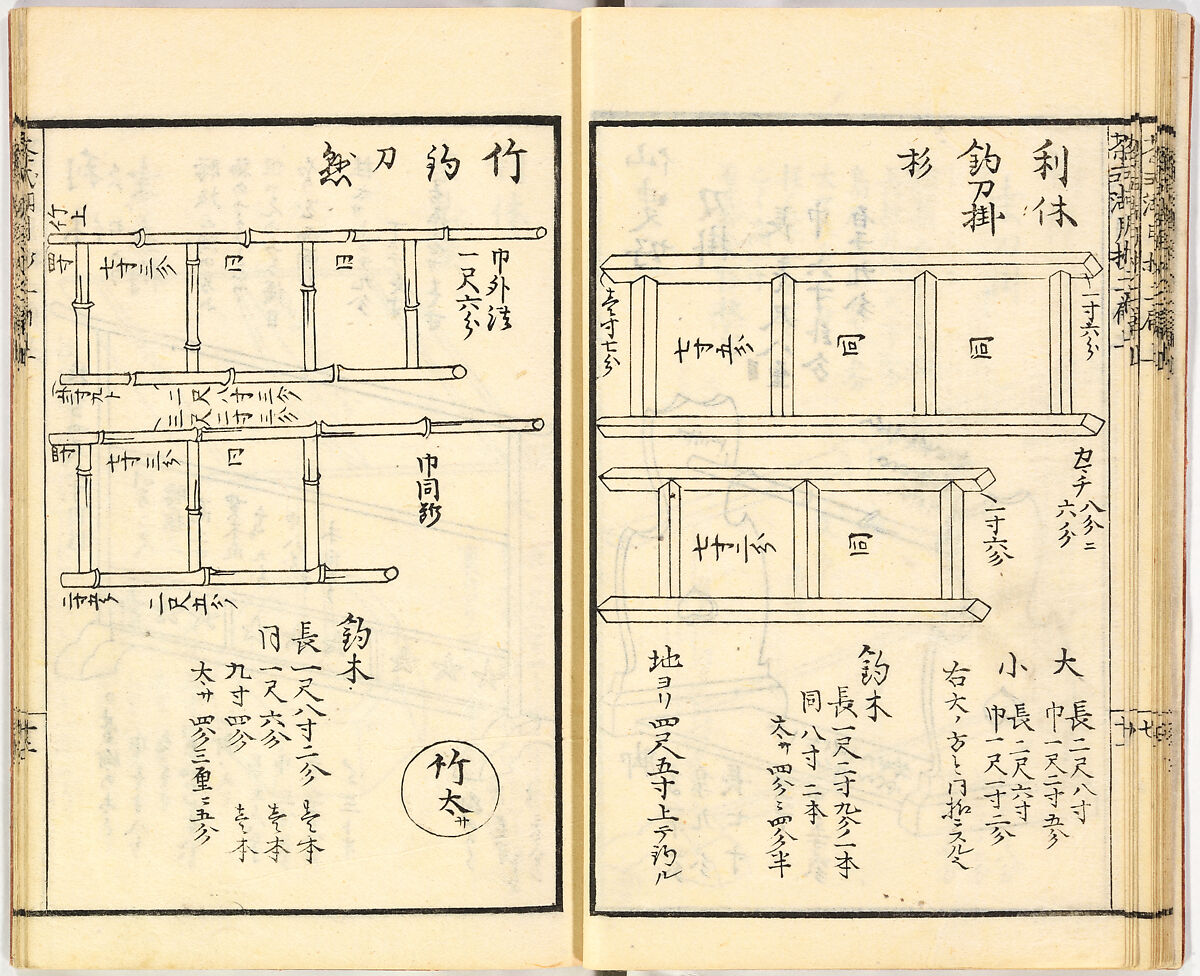 利休
釣刀掛
杉
一寸六分
同
同
七寸五分
壱寸七分
カマチ八分ニ
六分
一寸六分
同
七寸二分
大 長二尺八寸
巾一尺二寸五分
小 長二尺六寸
巾一尺一寸二分
釣木
長一尺二寸九分一本
同八寸二本
太サ四分ニ四分半
地ヨリ四尺五寸上テ釣ル
竹
釣
刀
巾外法
一尺六分
竹上
四寸
七寸三分
同
同
二尺八寸三分
三尺二寸三分
四寸
七寸三分
同
巾同断
二尺五分
釣木
長一尺八寸二分 壱本
同一尺六分 壱本
九寸四分 壱本
太サ四分三厘ニ五分
竹太サ